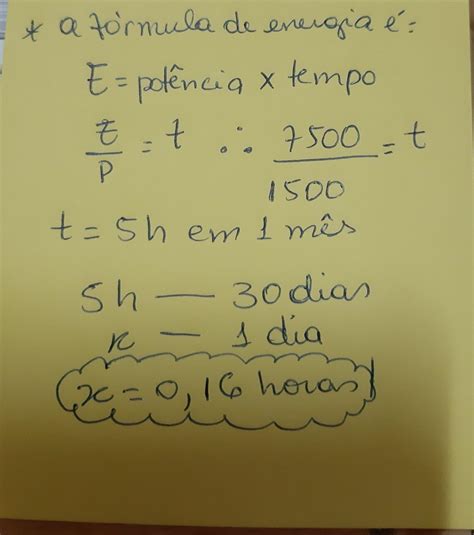 * a fórmula de energia é:
E = potência x tempo
E/P = t ∴ 7500/1500 = t
t = 5h em 1 mês
5h — 30 dias
x — 1 dia
x = 0,16 horas